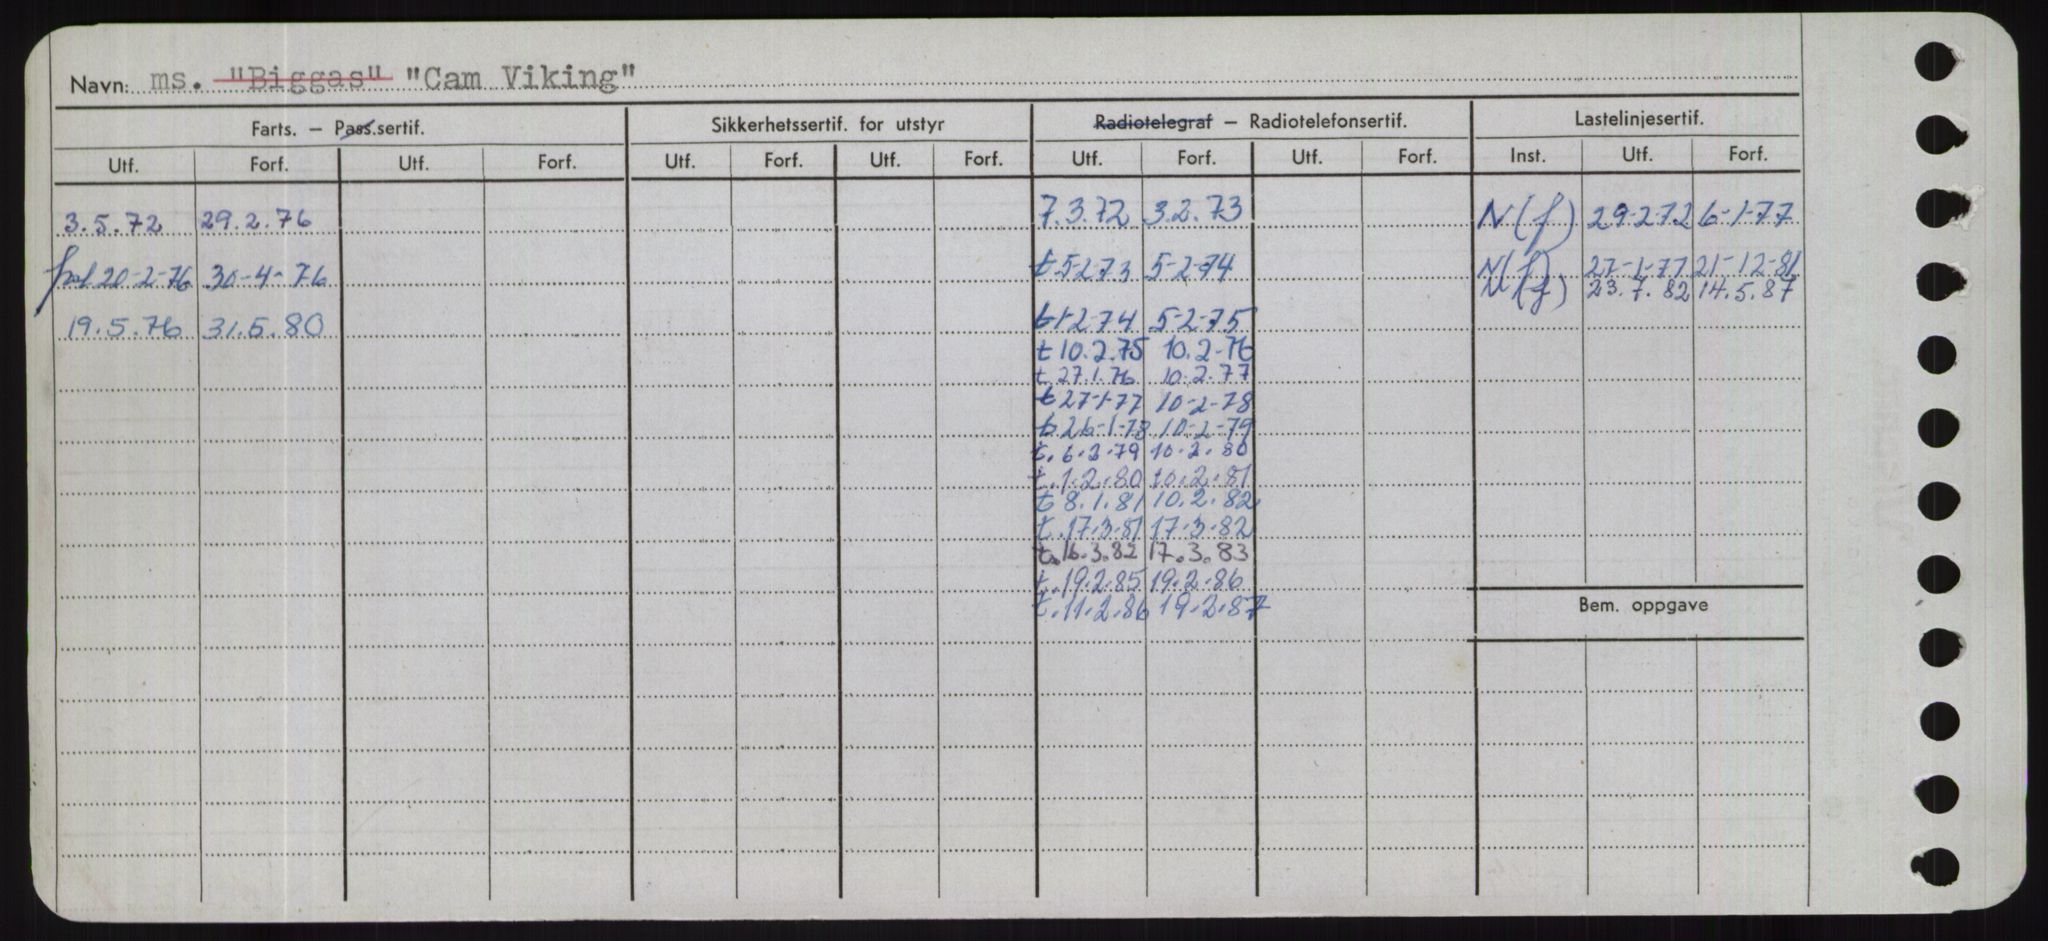 Navn: ms. "Biggas" "Cam Viking"
Farts. – Pass.sertif. Sikkerhetssertif. for utstyr Radiotelegraf – Radiotelefonsertif. Lastelinjesertif.
Utf. Forf. Utf. Forf. Utf. Forf. Utf. Forf. Utf. Forf. Utf. Forf. Inst. Utf. Forf.
3.5.72 29.2.76 7.3.72 3.2.73 N(f) 29-2-72 6-1-77
20-2-76 30-4-76 t.5-2-73 5-2-74 N(f) 27-1-77 21-12-81
N(f) 23.7.82 14.5.87
19.5.76 31.5.80 t1-2-74 5-2-75
t 10.2.75 10.2-76
t. 27.1.76 10.2.77
t 27-1-77 10-2-78
t 26-1-78 10-2-79
t. 6.2.79 10.2.80
t. 1.2.80 10.2.81
t 8.1.81 10.2.82
t. 17.3.81 17.3.82
t. 16.3.82 17.3.83
t. 19.2.85 19.2.86
t. 11.2.86 19.2.87
Bem. oppgave